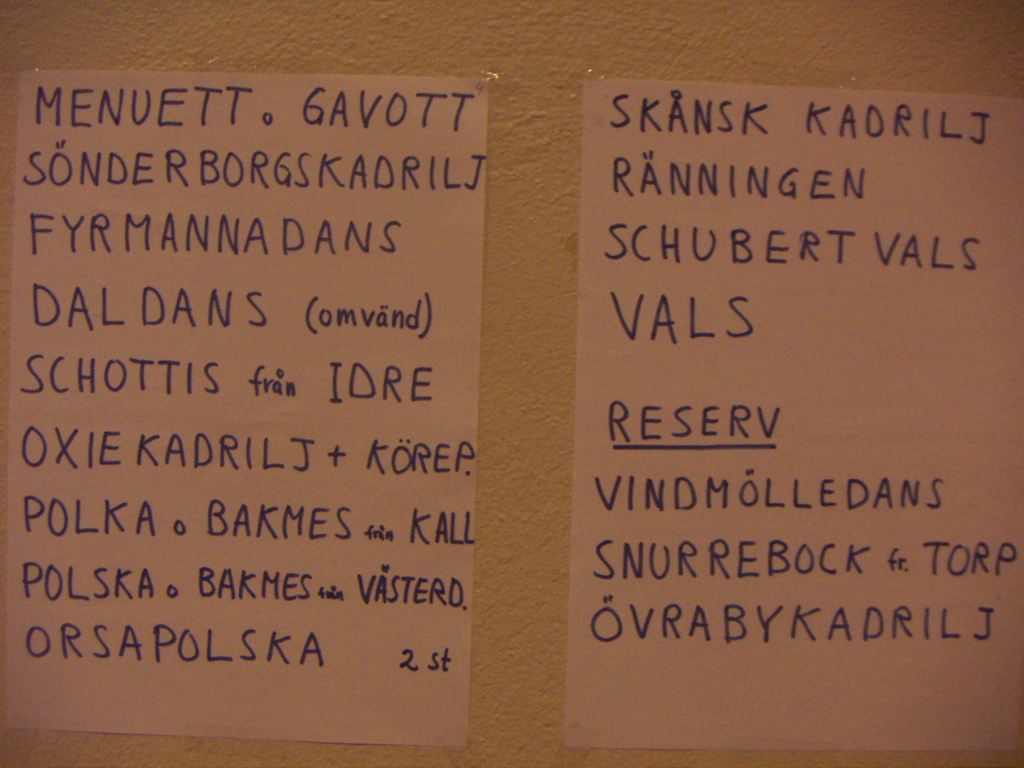 MENUETT o GAVOTT
SÖNDERBORGSKADRILJ
FYRMANNADANS
DALDANS (omvänd)
SCHOTTIS från IDRE
OXIEKADRILJ + KÖREP.
POLKA o BAKMES från KALL
POLSKA o BAKMES från VÄSTERD.
ORSAPOLSKA 2 st
SKÅNSK KADRILJ
RÄNNINGEN
SCHUBERT VALS
VALS
RESERV
VINDMÖLLEDANS
SNURREBOCK fr. TORP
ÖVRABYKADRILJ